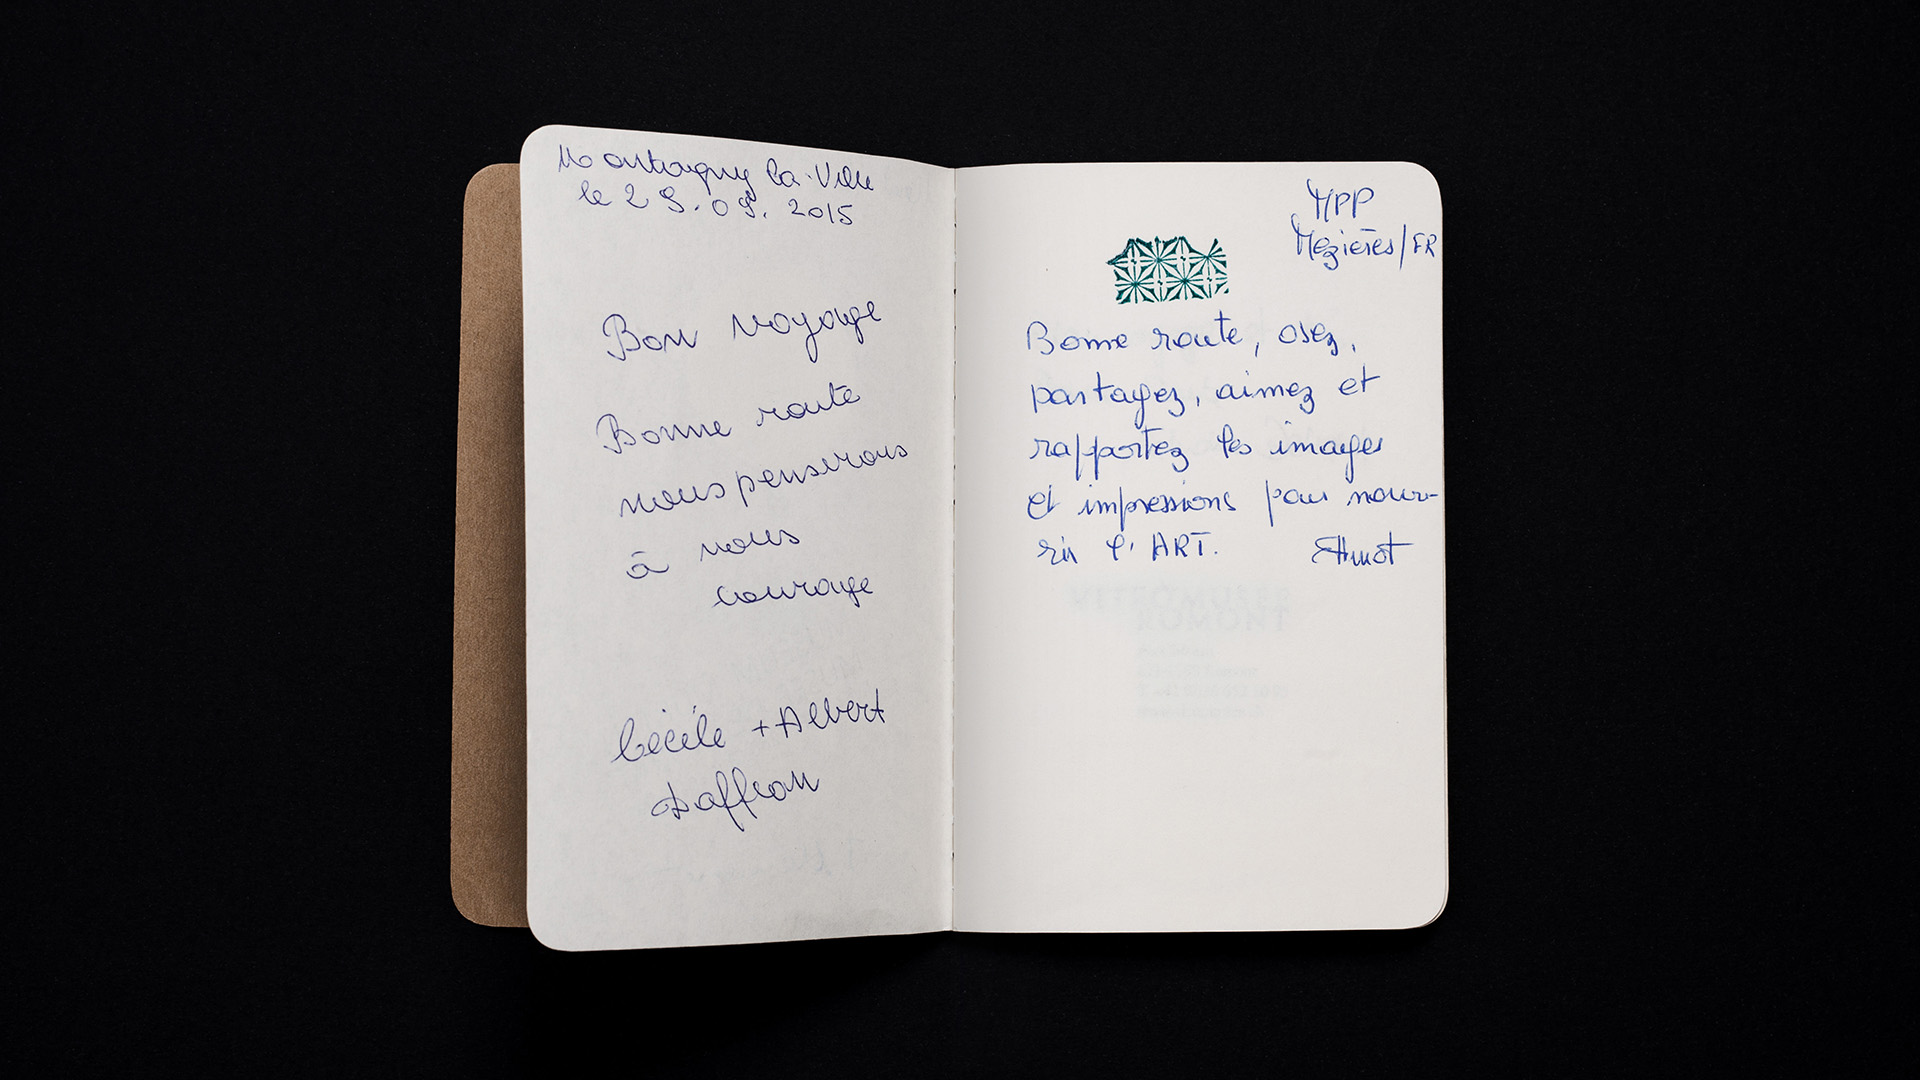 Montagny la-Ville
le 29.09.2015
Bon voyage
Bonne route
nous penserons
à vous
courage
Cécile + Albert
Daffron
MPP
Mezières/FR
Bonne route, osez,
partagez, aimez et
rapportez les images
et impressions pour nour-
rir l'ART.